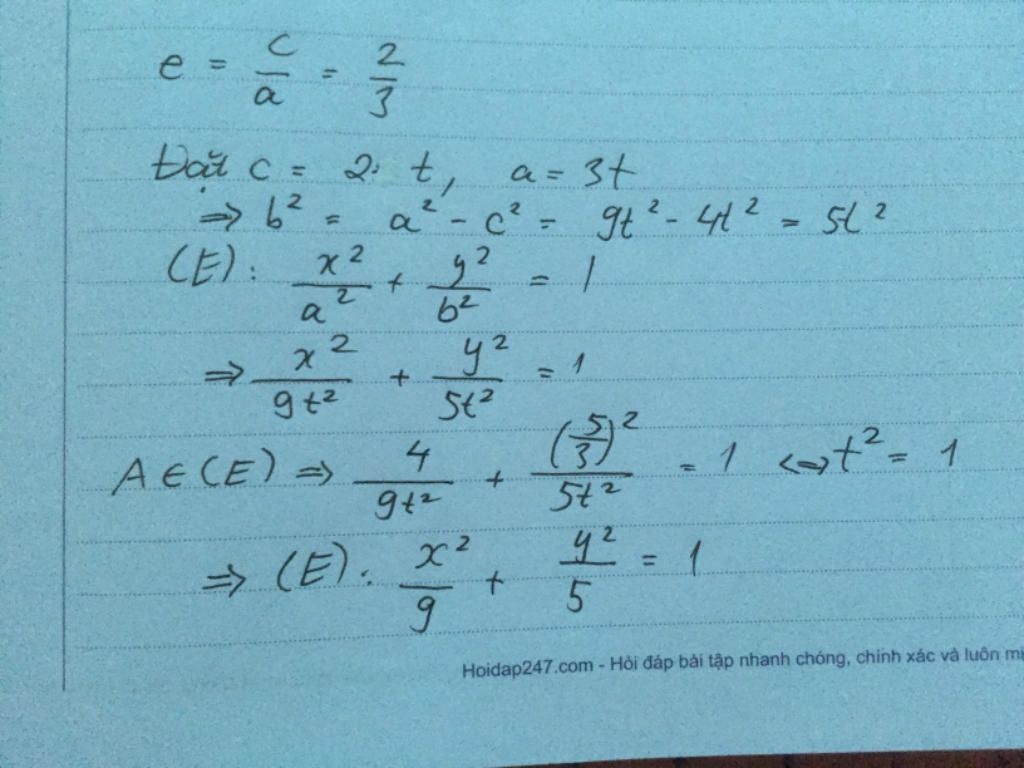 e = c/a = 2/3
Đặt c = 2. t, a = 3t
⇒ b² = a² - c² = 9t² - 4t² = 5t²
(E): x²/a² + y²/b² = 1
⇒ x²/9t² + y²/5t² = 1
A ∈ (E) ⇒ 4/9t² + (5/3)²/5t² = 1 ⇔ t² = 1
⇒ (E): x²/9 + y²/5 = 1
Hoidap247.com - Hỏi đáp bài tập nhanh chóng, chính xác và luôn mi